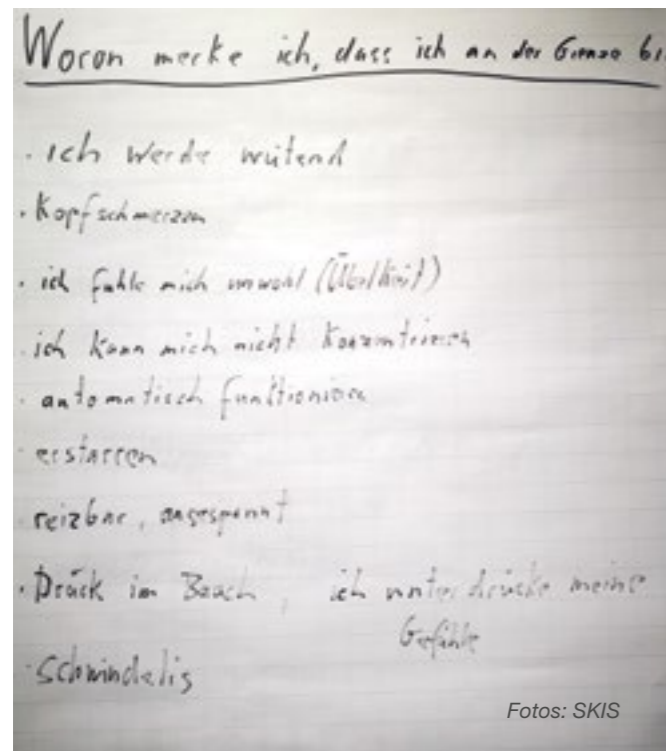 Woran merke ich, dass ich an der Grenze bi
· ich werde wütend
· Kopfschmerzen
· ich fühle mich unwohl (Übelkeit)
· ich kann mich nicht konzentrieren
· automatisch funktionieren
· erstarren
· reizbar, angespannt
· Druck im Bauch, ich unterdrücke meine
Gefühle
· Schwindelis
Fotos: SKIS